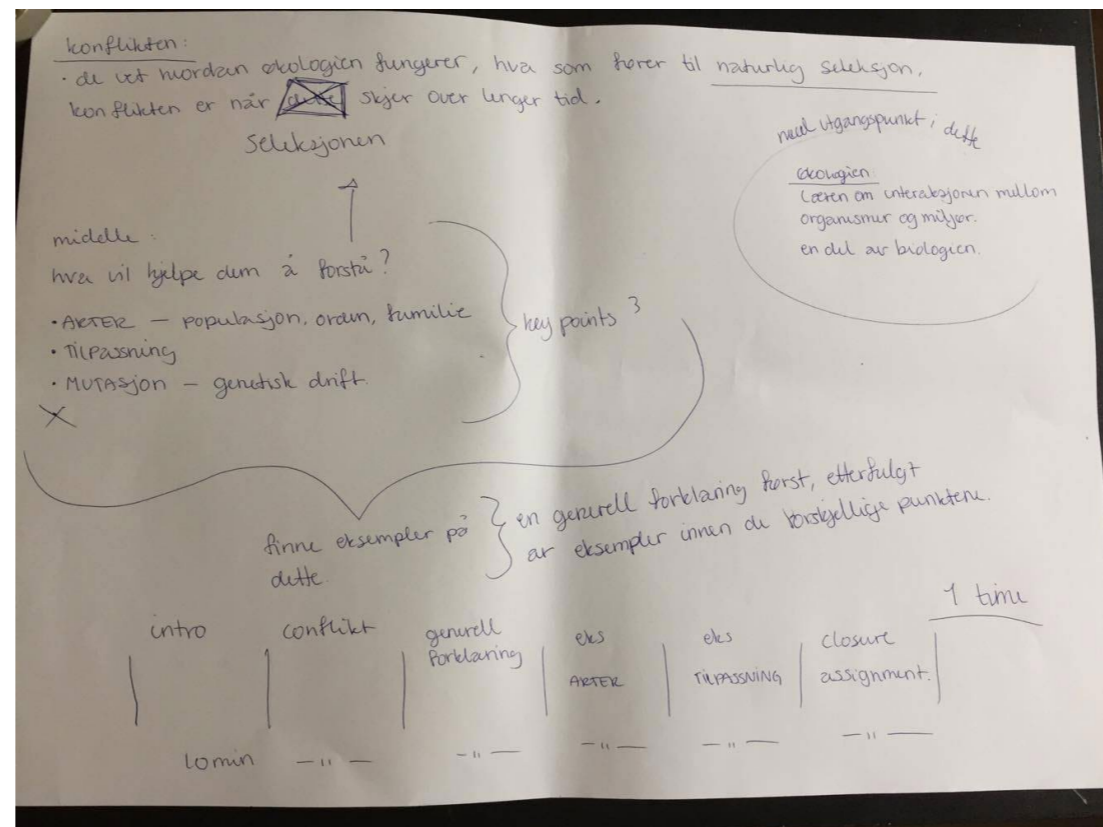 konflikten:
· de vet hvordan økologien fungerer, hva som hører til naturlig seleksjon.
konflikten er når dette skjer over lenger tid.
seleksjonen
med utgangspunkt i dette
økologien:
Læren om interaksjonen mellom
organismer og miljøer.
en del av biologien.
midelle:
hva vil hjelpe dem å forstå?
· ARTER – populasjon, orden, familie
· TILPASNING
· MUTASJON – genetisk drift.
key points 3
finne eksempler på
dette.
en generell forklaring først, etterfulgt
av eksempler innen de forskjellige punktene.
1 time
intro
conflikt
generell
forklaring
eks
ARTER
eks
TILPASSNING
closure
assignment.
10min – " – – " – – " – – " – – " –